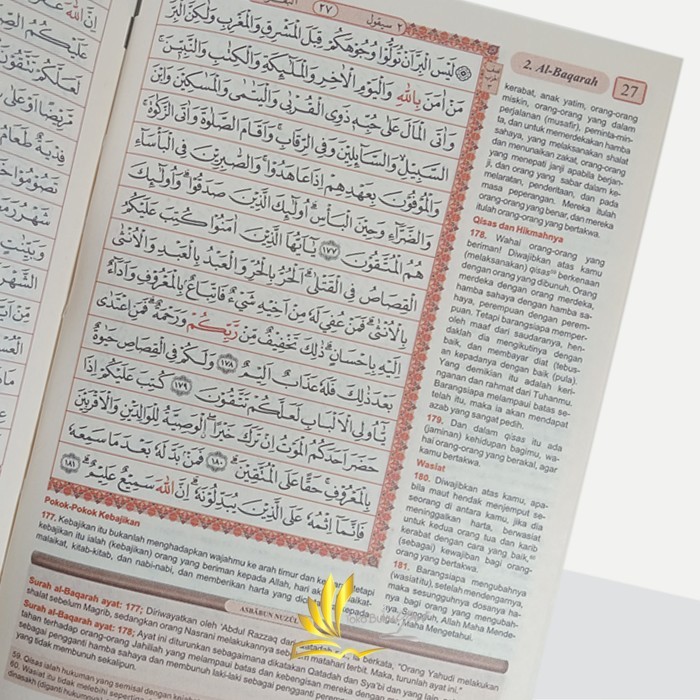 ٢ سيقول
٢٧
۞ لَيْسَ الْبِرَّ اَنْ تُوَلُّوْا وُجُوْهَكُمْ قِبَلَ الْمَشْرِقِ وَالْمَغْرِبِ وَلٰكِنَّ الْبِرَّ
مَنْ اٰمَنَ بِاللّٰهِ وَالْيَوْمِ الْاٰخِرِ وَالْمَلٰۤىِٕكَةِ وَالْكِتٰبِ وَالنَّبِيّٖنَۚ
وَاٰتَى الْمَالَ عَلٰى حُبِّهٖ ذَوِى الْقُرْبٰى وَالْيَتٰمٰى وَالْمَسٰكِيْنَ وَابْنَ
السَّبِيْلِۙ وَالسَّاۤىِٕلِيْنَ وَفِى الرِّقَابِۚ وَاَقَامَ الصَّلٰوةَ وَاٰتَى الزَّكٰوةَۚ
وَالْمُوْفُوْنَ بِعَهْدِهِمْ اِذَا عَاهَدُوْاۚ وَالصّٰبِرِيْنَ فِى الْبَأْسَاۤءِ
وَالضَّرَّاۤءِ وَحِيْنَ الْبَأْسِۗ اُولٰۤىِٕكَ الَّذِيْنَ صَدَقُوْاۗ وَاُولٰۤىِٕكَ
هُمُ الْمُتَّقُوْنَ ١٧٧ يٰٓاَيُّهَا الَّذِيْنَ اٰمَنُوْا كُتِبَ عَلَيْكُمُ
الْقِصَاصُ فِى الْقَتْلٰىۗ اَلْحُرُّ بِالْحُرِّ وَالْعَبْدُ بِالْعَبْدِ وَالْاُنْثٰى
بِالْاُنْثٰىۗ فَمَنْ عُفِيَ لَهٗ مِنْ اَخِيْهِ شَيْءٌ فَاتِّبَاعٌۢ بِالْمَعْرُوْفِ وَاَدَاۤءٌ
اِلَيْهِ بِاِحْسَانٍۗ ذٰلِكَ تَخْفِيْفٌ مِّنْ رَّبِّكُمْ وَرَحْمَةٌۗ فَمَنِ اعْتَدٰى
بَعْدَ ذٰلِكَ فَلَهٗ عَذَابٌ اَلِيْمٌ ١٧٨ وَلَكُمْ فِى الْقِصَاصِ حَيٰوةٌ
يّٰٓاُولِى الْاَلْبَابِ لَعَلَّكُمْ تَتَّقُوْنَ ١٧٩ كُتِبَ عَلَيْكُمْ اِذَا
حَضَرَ اَحَدَكُمُ الْمَوْتُ اِنْ تَرَكَ خَيْرًاۖ ۨالْوَصِيَّةُ لِلْوَالِدَيْنِ وَالْاَقْرَبِيْنَ
بِالْمَعْرُوْفِۚ حَقًّا عَلَى الْمُتَّقِيْنَۗ ١٨٠ فَمَنْۢ بَدَّلَهٗ بَعْدَمَا سَمِعَهٗ
فَاِنَّمَآ اِثْمُهٗ عَلَى الَّذِيْنَ يُبَدِّلُوْنَهٗۗ اِنَّ اللّٰهَ سَمِيْعٌ عَلِيْمٌۗ ١٨١
2. Al-Baqarah
27
kerabat, anak yatim, orang-orang
miskin, orang-orang yang dalam
perjalanan (musafir), peminta-min-
ta, dan untuk memerdekakan hamba
sahaya, yang melaksanakan shalat
dan menunaikan zakat, orang-orang
yang menepati janji apabila berjan-
ji, dan orang yang sabar dalam ke-
melaratan, penderitaan, dan pada
masa peperangan. Mereka itulah
orang-orang yang benar, dan mereka
itulah orang-orang yang bertakwa.
Qisas dan Hikmahnya
178. Wahai orang-orang yang
beriman! Diwajibkan atas kamu
(melaksanakan) qisas berkenaan
dengan orang yang dibunuh. Orang
merdeka dengan orang merdeka,
hamba sahaya dengan hamba sa-
haya, perempuan dengan perem-
puan. Tetapi barangsiapa memper-
oleh maaf dari saudaranya, hen-
daklah dia mengikutinya dengan
baik, dan membayar diat (tebus-
an) kepadanya dengan baik (pula).
Yang demikian itu adalah keri-
nganan dan rahmat dari Tuhanmu.
Barangsiapa melampaui batas se-
telah itu, maka ia akan mendapat
azab yang sangat pedih.
179. Dan dalam qisas itu ada
(jaminan) kehidupan bagimu, wa-
hai orang-orang yang berakal, agar
kamu bertakwa.
Wasiat
180. Diwajibkan atas kamu, apa-
bila maut hendak menjemput se-
seorang di antara kamu, jika dia
meninggalkan harta, berwasiat
untuk kedua orang tua dan karib
kerabat dengan cara yang baik,
(sebagai) kewajiban bagi orang-
orang yang bertakwa.
181. Barangsiapa mengubahnya
(wasiat itu), setelah mendengarnya,
maka sesungguhnya dosanya ha-
nya bagi orang yang mengubah-
nya. Sungguh, Allah Maha Mende-
ngar, Maha Mengetahui.
Pokok-Pokok Kebajikan
177. Kebajikan itu bukanlah menghadapkan wajahmu ke arah timur dan ke tetapi
kebajikan itu ialah (kebajikan) orang yang beriman kepada Allah, hari
malaikat, kitab-kitab, dan nabi-nabi, dan memberikan harta yang
ASBĀBUN NUZŪL
Surah al-Baqarah ayat: 177; Diriwayatkan oleh 'Abdul Razzaq dari berkata, "Orang Yahudi melakukan
shalat sebelum Magrib, sedangkan orang Nasrani melakukannya matahari terbit. Maka, turunlah ayat ini."
Surah al-Baqarah ayat: 178; Ayat ini diturunkan sebagaimana dikatakan Qatadah dan Sya'bi dan yang lain,
tahan terhadap orang-orang Jahiliah yang melampaui batas dan kebengisan mereka dengan
sebagai pengganti hamba sahaya dan membunuh laki-laki sebagai pengganti
yang tidak membunuh sekalipun.
59. Qisas ialah hukuman yang semisal dengan
60. Wasiat itu tidak melebihi